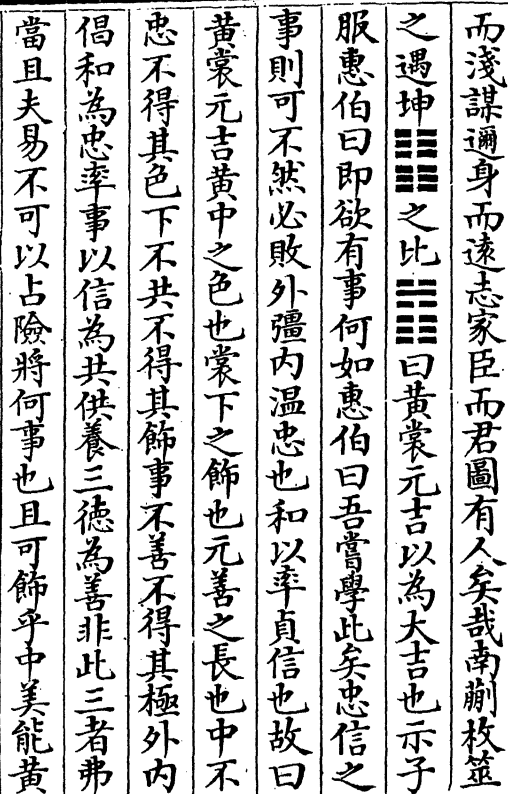 而淺謀邇身而遠志家臣而君圖有人矣哉南蒯枚筮
之遇坤䷁之比䷇曰黃裳元吉以為大吉也示子
服惠伯曰即欲有事何如惠伯曰吾嘗學此矣忠信之
事則可不然必敗外彊内温忠也和以率貞信也故曰
黃裳元吉黃中之色也裳下之飾也元善之長也中不
忠不得其色下不共不得其飾事不善不得其極外内
倡和為忠率事以信為共供養三徳為善非此三者弗
當且夫易不可以占險將何事也且可飾乎中美能黃